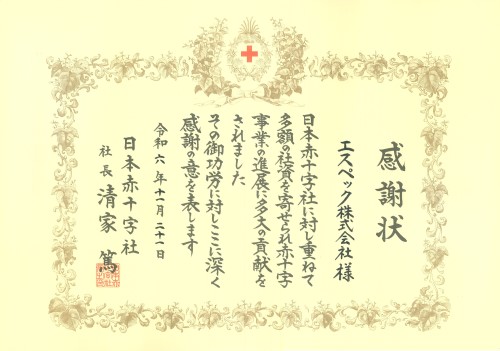 感謝状
エスペック株式会社 様
日本赤十字社に対し重ねて
多額の社資を寄せられ赤十字
事業の進展に多大の貢献を
されました
その御功労に対しここに深く
感謝の意を表します
令和六年十一月二十一日
日本赤十字社
社長 清家 篤